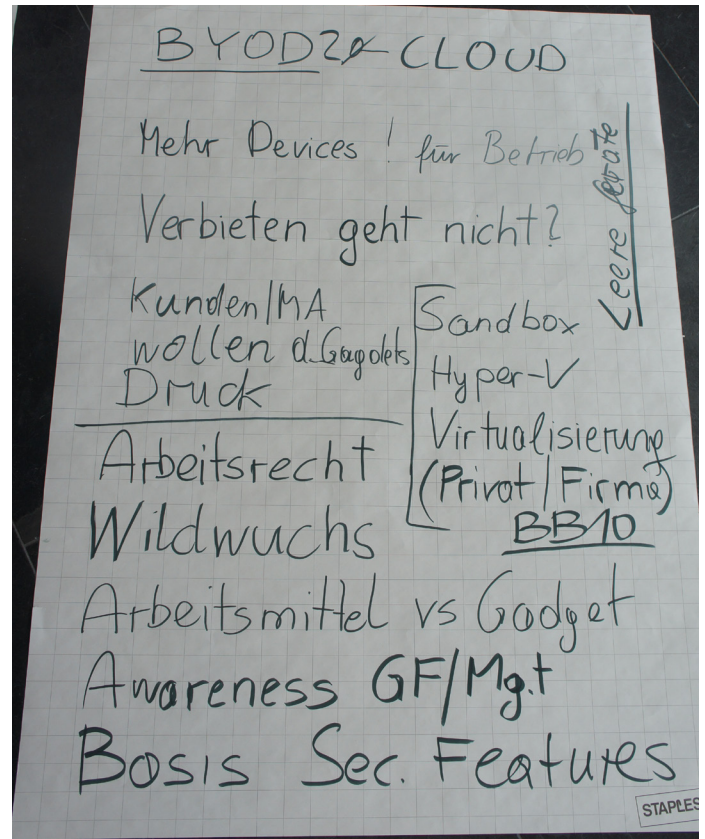 BYOD CLOUD
Mehr Devices ! für Betrieb
Leere Geräte
Verbieten geht nicht?
Kunden/MA
wollen d. Gagdets
Druck
Sandbox
Hyper-V
Virtualisierung
(Privat/Firma)
BB10
Arbeitsrecht
Wildwuchs
Arbeitsmittel vs Gadget
Awareness GF/Mg.t
Basis Sec. Features
STAPLES